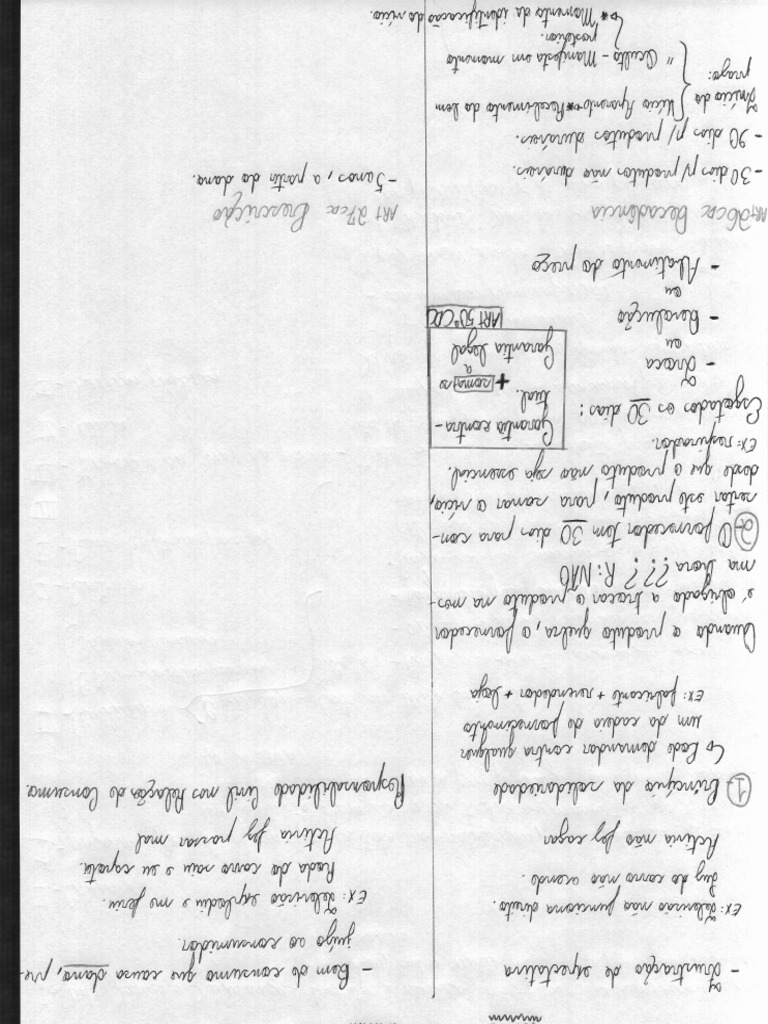 - Frustração de expectativa
Ex: Televisão não funciona direito.
Luz do carro não acende.
Activia não fez cagar
1 Princípio da solidariedade
↳ Pode demandar contra qualquer
um da cadeia de fornecimento
Ex: fabricante + revendedor + loja
Quando o produto quebra, o fornecedor
é obrigado a trocar o produto na mes-
ma hora??? R: NÃO
2 O fornecedor tem 30 dias para con-
sertar este produto, para sanar o vício,
desde que o produto não seja essencial.
Ex: respirador.
Esgotados os 30 dias:
- Troca
ou
- Devolução
ou
- Abatimento do preço
Garantia contra-
tual.
+ soma-se
a
Garantia legal
ART 50º CDC
ART 26 CDC Decadência
- 30 dias p/ produtos não duráveis.
- 90 dias p/ produtos duráveis.
Início do prazo:
{ Vício Aparente → Recebimento do bem
" Oculto - Manifesta em momento
posterior.
↳ Momento da identificação do vício.
- Bem de consumo que causa dano, pre-
juízo ao consumidor.
Ex: Televisão explodiu e me feriu.
Roda do carro saiu e eu capotei.
Activia fez passar mal
Responsabilidade Civil nas Relações de Consumo.
ART 27 CDC Prescrição
- 5 anos, a partir do dano.